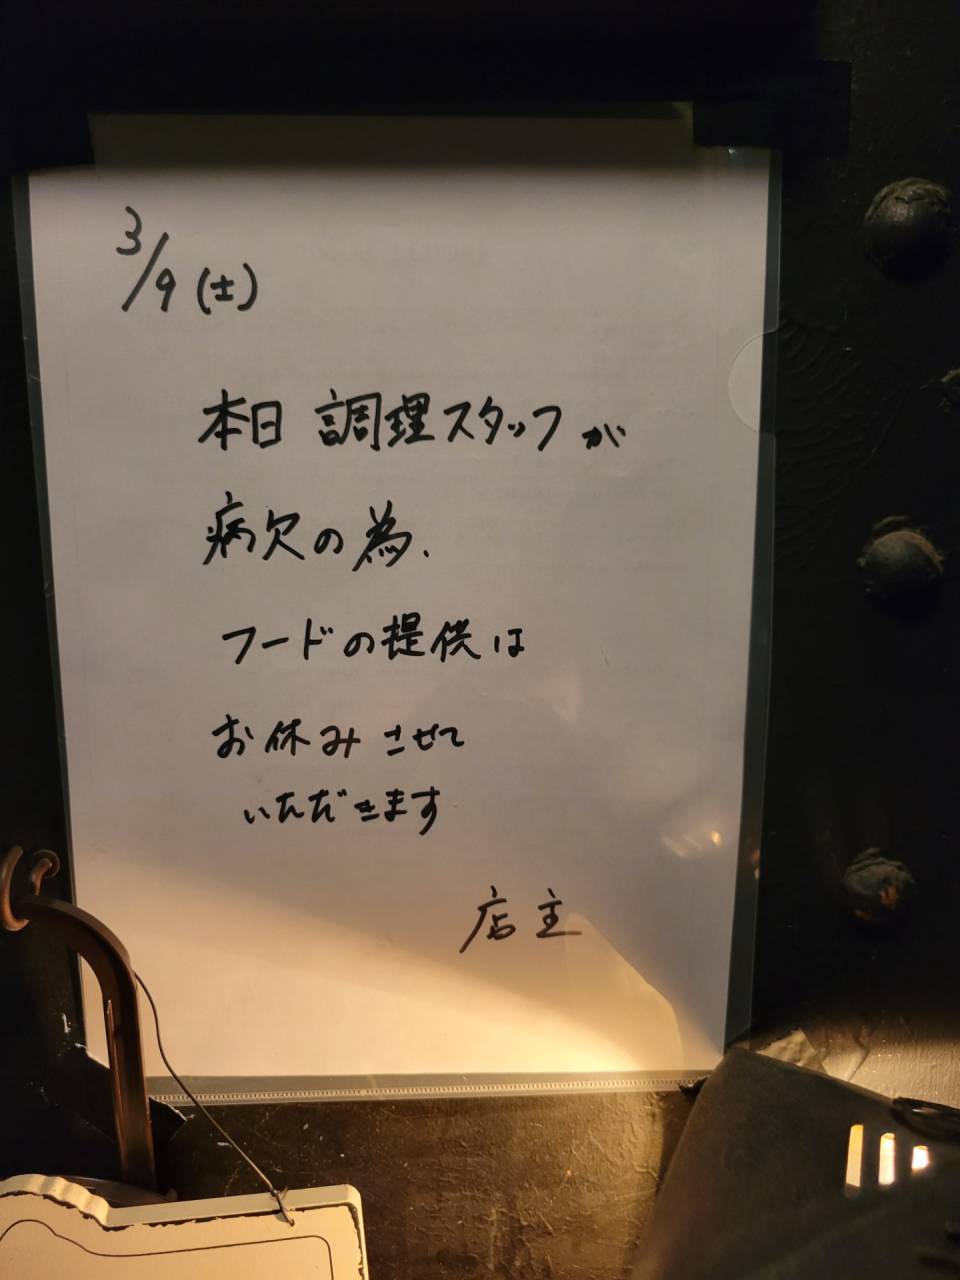 3/9(土)
本日 調理スタッフが
病欠の為、
フードの提供は
お休みさせて
いただきます
店主